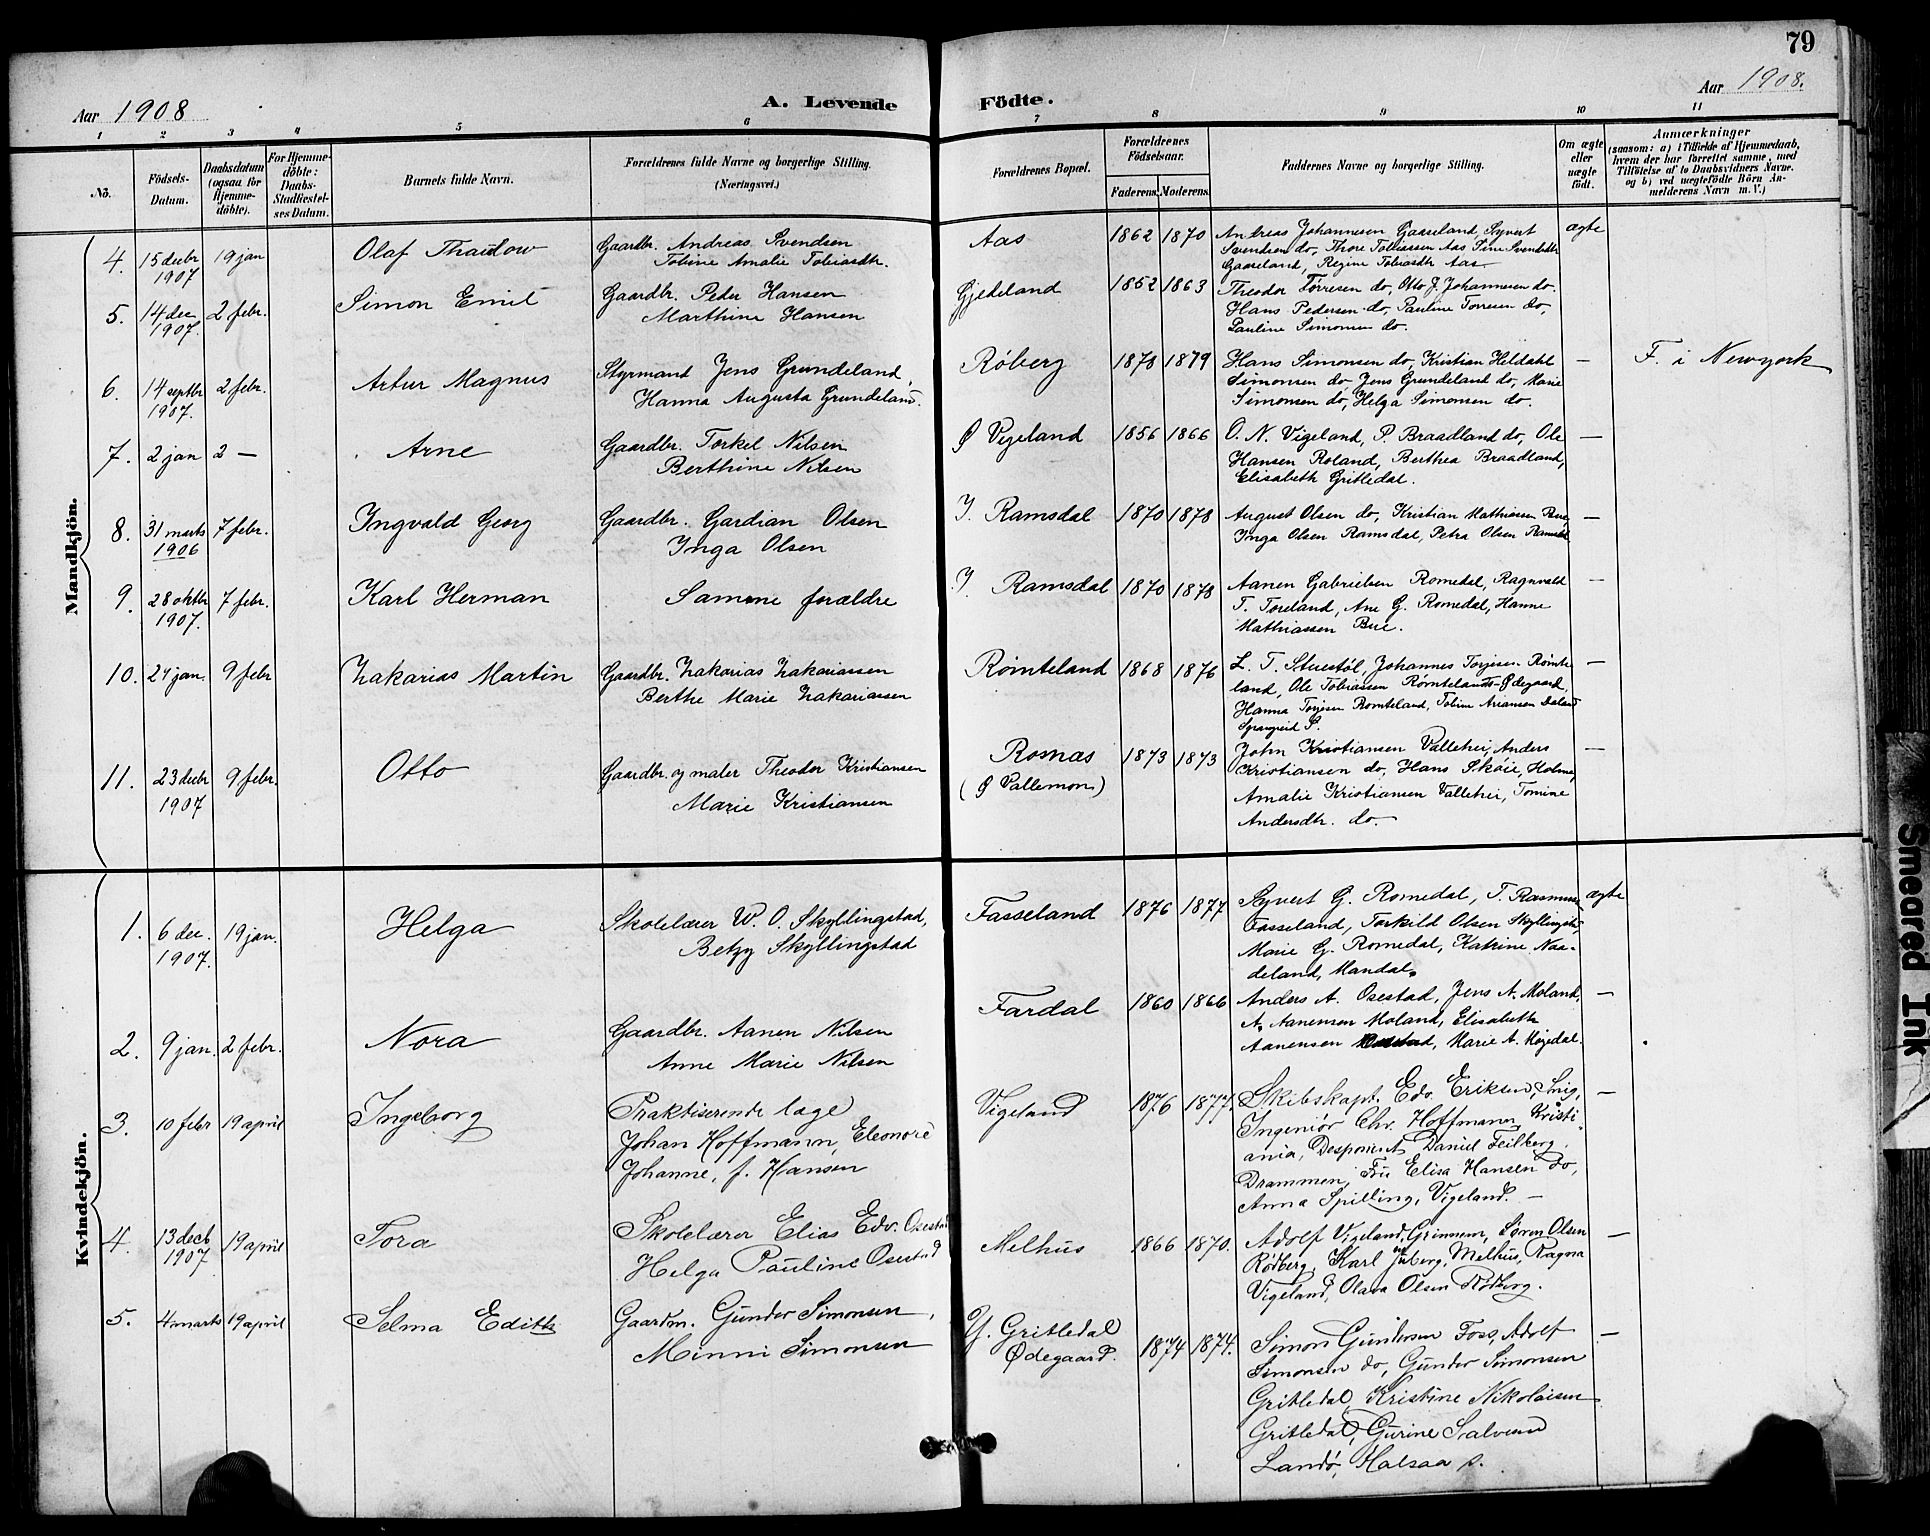 79
Aar 1908
A. Levende Födte.
Aar 1908.
1 2 3 4 5 6 7 8 9 10 11
No.
Födsels-Datum.
Daabsdatum (ogsaa for Hjemme-döbte).
For Hjemme-döbte: Daabs-Stadfæstel-ses Datum.
Barnets fulde Navn.
Forældrenes fulde Navne og borgerlige Stilling. (Næringsvei.)
Forældrenes Bopæl.
Forældrenes Födselsaar.
Faderens. Moderens.
Faddernes Navne og borgerlige Stilling.
Om ægte eller uægte födt.
Anmærkninger
(saasom: a) i Tilfælde af Hjemmedaab, hvem der har forrettet samme, med Tilföielse af to Daabsvidners Navne. og b) ved uægtefödte Börn An-melderens Navn m. V.)
Mandkjön.
4. 15 decbr 1907 19 jan Olaf Thaulow Gaardbr. Andreas Svendsen Tobine Amalie Tobiasdtr. Aas 1862 1870 Andreas Johannesen Gaaseland, Syvert
Svendsen do, Thore Tobiassen Aas, Sine Svendsdtr
Gaaseland, Regine Tobiasdtr Aas. ægte
5. 14 dec 1907. 2 febr. Simon Emil Gaardbr. Peder Hansen Marthine Hansen Gjedeland 1852 1863 Theodor Törresen do, Otto J. Johannesen do.
Hans Pedersen do, Pauline Torresen do,
Pauline Simonsen do.
6. 14 septbr 1907. 2 febr. Artur Magnus Styrmand Jens Grundeland, Hanna Augusta Grundeland. Röberg 1878 1879 Hans Simonsen do, Kristian Heldahl
Simonsen do, Jens Grundeland do, Marie
Simonsen do, Helga Simonsen do. — F. i Newyork
7. 2 jan 2 — Arne Gaardbr. Torkel Nilsen Berthine Nilsen Ø Vigeland 1856 1866 O. N. Vigeland, P. Braadland do, Ole
Hansen Roland, Berthea Braadland,
Elisabeth Gritledal. —
8. 31 marts 1906 7 febr. Ingvald Georg Gaardbr. Gardian Olsen Inga Olsen Y. Ramsdal 1870 1878 August Olsen do, Kristian Mathiassen Bue,
Inga Olsen Ramsdal, Petra Olsen Ramsdal —
9. 28 oktbr 1907. 7 febr. Karl Herman Samme forældre Y. Ramsdal 1870 1878 Aanen Gabrielsen Romedal, Ragnvald
T. Foreland, Ane G. Romedal, Hanne
Mathiassen Bue. —
10. 24 jan. 9 febr Zakarias Martin Gaardbr. Zakarias Zakariassen Berthe Marie Zakariassen Römteland 1868 1876 L. T. Stuestöl, Johannes Torjesen Römte
land, Ole Tobiassen Römtelands-Ødegaard,
Hanna Torjesen Romteland, Tobine Ariansen Daland
Spangreid S. —
11. 23 decbr 1907 9 febr. Otto Gaardbr. og maler Theodor Kristiansen Marie Kristiansen Romas (Ø Vallemon) 1873 1873 John Kristiansen Valletrei, Anders
Kristiansen do, Hans Sköie, Holme,
Amalie Kristiansen Valletrei, Tomine
Andersdtr. do. —
Kvindekjön.
1. 6 dec. 1907. 19 jan. Helga Skolelærer W. O. Skyllingstad, Betzy Skyllingstad Fasseland 1876 1877 Syvert G. Romedal, T. Rasmussen
Fasseland, Torkild Olsen Skyllingstad,
Marie G. Romedal, Katrine Naa-
deland, Mandal. ægte
2. 9 jan. 2 febr. Nora Gaardbr. Aanen Nilsen Anne Marie Nilsen Fardal 1860 1866 Anders A. Osestad, Jens A. Moland,
A. Aanensen Moland, Elisabeth
Aanensen Osestad, Marie A. Höiedal. —
3. 10 febr 19 april Ingeborg Praktiserende læge Johan Hoffmann, Eleonore Johanne, f. Hansen Vigeland 1876 1877. Skibskapt. Edv. Eriksen, Snig,
Ingeniør Chr. Hoffmann, Kristi-
ania, Desponent Daniel Feilberg,
Drammen, Fru Elisa Hansen do,
Anna Spilling, Vigeland. —
4. 13 decb 1907 19 april Tora Skolelærer Elias Edv. Osestad Helga Pauline Osestad Melhus 1866 1870. Adolf Vigeland, Grinnem, Sören Olsen
Rödberg, Karl Juberg, Melhus, Ragna
Vigeland, Olava Olsen Rödberg. —
5. 4 marts 19 april Selma Edith Gaardm. Gunder Simonsen, Minni Simonsen Y. Gritledal Ødegaard. 1874 1874. Simon Gundersen Foss, Adolf
Simonsen do, Gunder Simonsen
Gritledal, Kristine Nikolaisen
Gritledal, Gurine Salvesen
Landö, Halsaa s. —
Smeared Ink